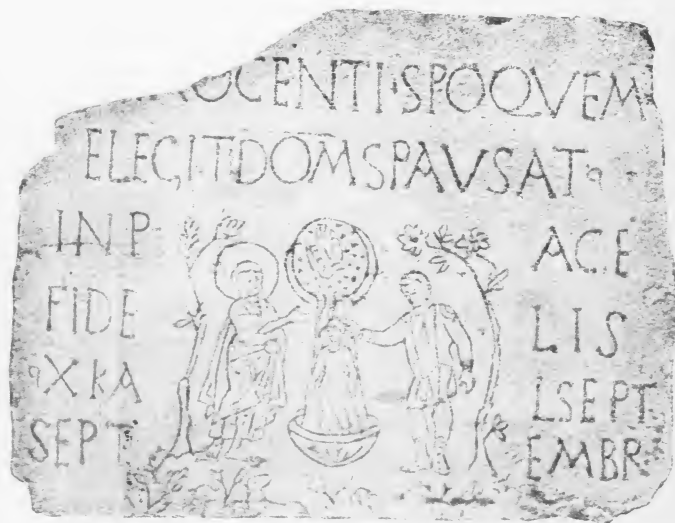 NOCENTI·SPOQVEM
ELEGITDOMSPAVSAT
INP ACE
FIDE LIS
XKA LSEPT
SEPT EMBR